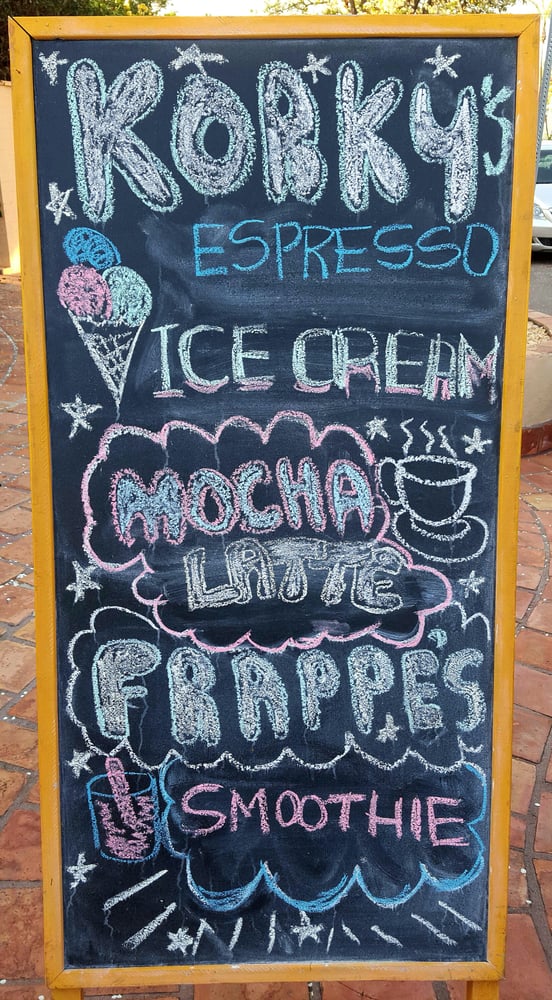 KORKY'S
ESPRESSO
ICE CREAM
MOCHA
LATTE
FRAPPE'S
SMOOTHIE